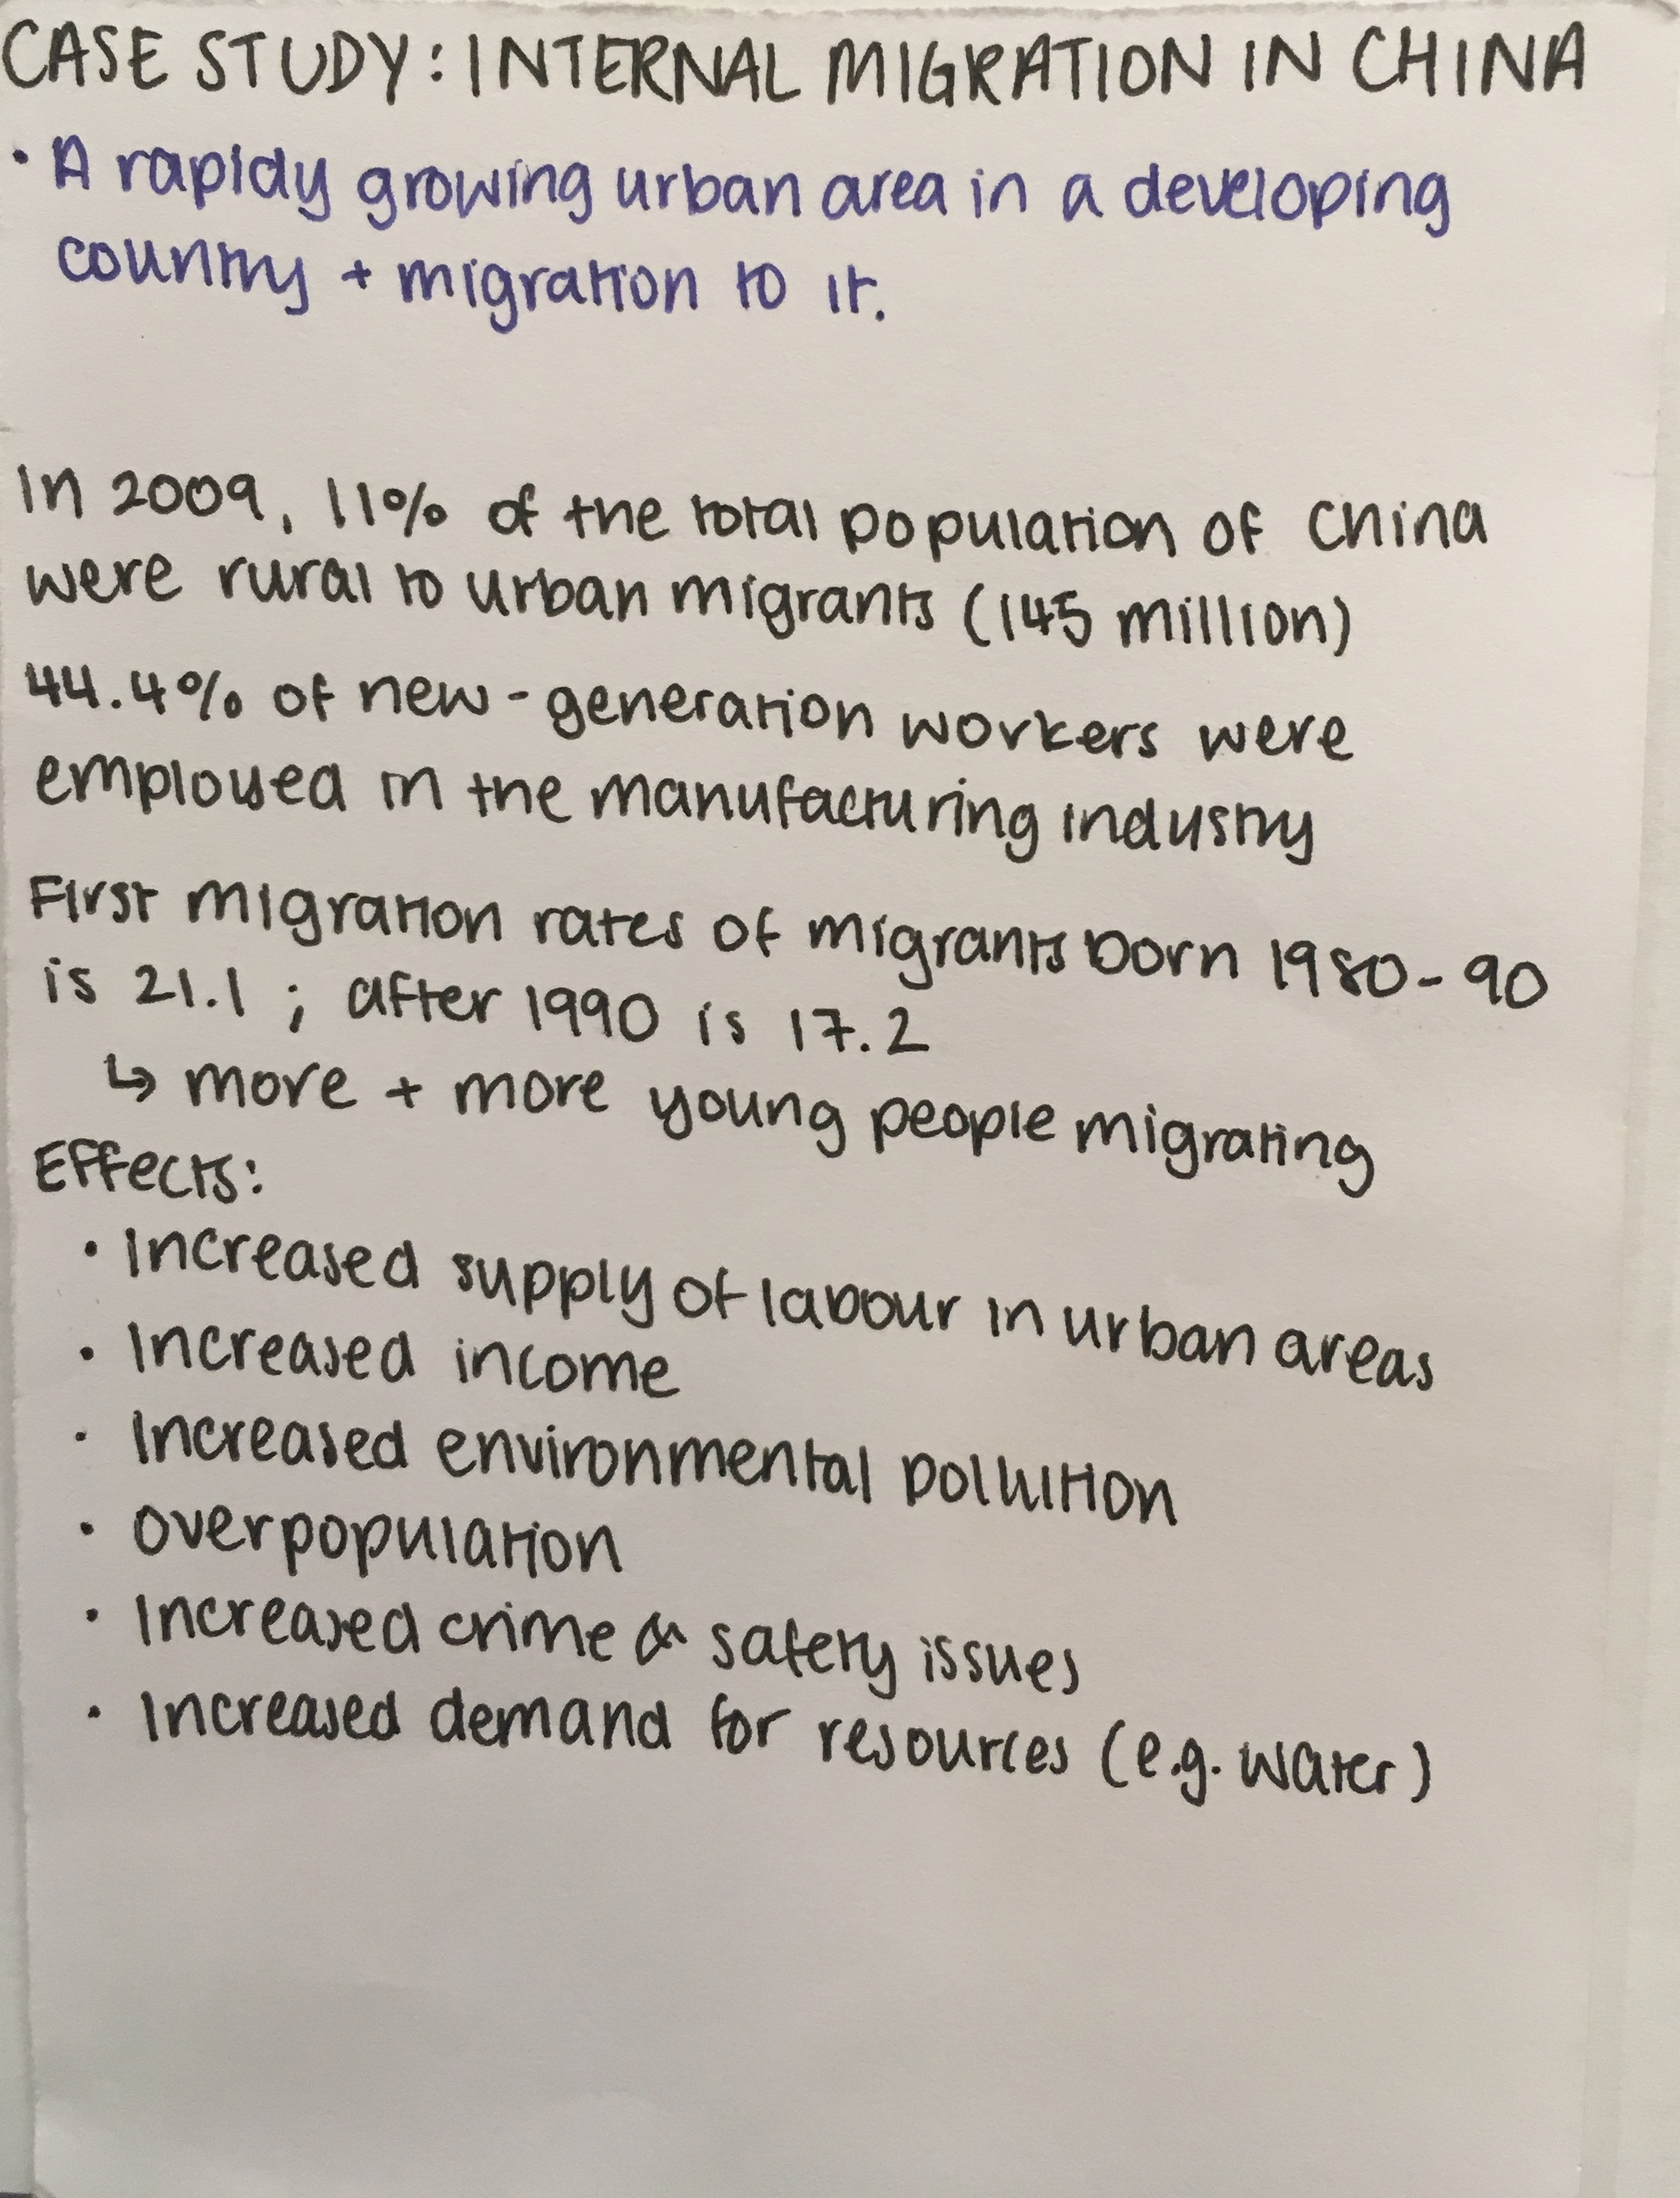 CASE STUDY: INTERNAL MIGRATION IN CHINA
• A rapidly growing urban area in a developing
country + migration to it.
In 2009, 11% of the total population of China
were rural to urban migrants (145 million)
44.4% of new-generation workers were
employed in the manufacturing industry
First migration rates of migrants born 1980-90
is 21.1 ; after 1990 is 17.2
↳ more + more young people migrating
Effects:
• Increased supply of labour in urban areas
• Increased income
• Increased environmental pollution
• Overpopulation
• Increased crime & safety issues
• Increased demand for resources (e.g. water)